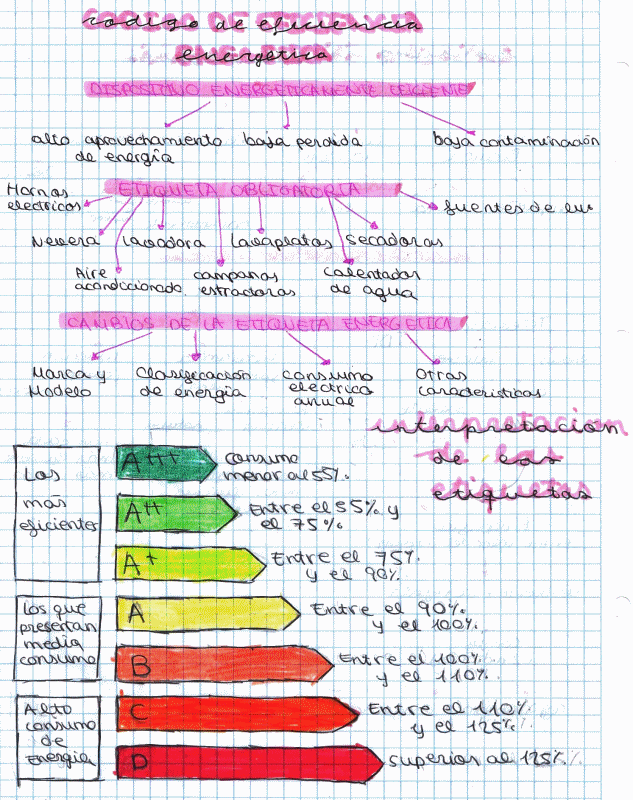 codigo de eficiencia
energetica
DISPOSITIVO ENERGETICAMENTE EFICIENTE
alto aprovechamiento
de energía
baja perdida
baja contaminación
ETIQUETA OBLIGATORIA
Hornos
electricos
fuentes de luz
Nevera
Lavadora
Lavaplatos
secadoras
Aire
acondiccionado
campanas
extractoras
calentador
de agua
CAMBIOS DE LA ETIQUETA ENERGETICA
Marca y
Modelo
Clasificación
de energía
consumo
electrico
anual
Otras
caracteristicas
interpretacion
de las
etiquetas
Los
mas
eficientes
A+++
consumo
menor al 55%
A++
Entre el 55% y
el 75%
A+
Entre el 75%
y el 90%
Los que
presentan
media
consumo
A
Entre el 90%
y el 100%
B
Entre el 100%
y el 110%
Alto
consumo
de
Energia
C
Entre el 110%
y el 125%
D
superior al 125%